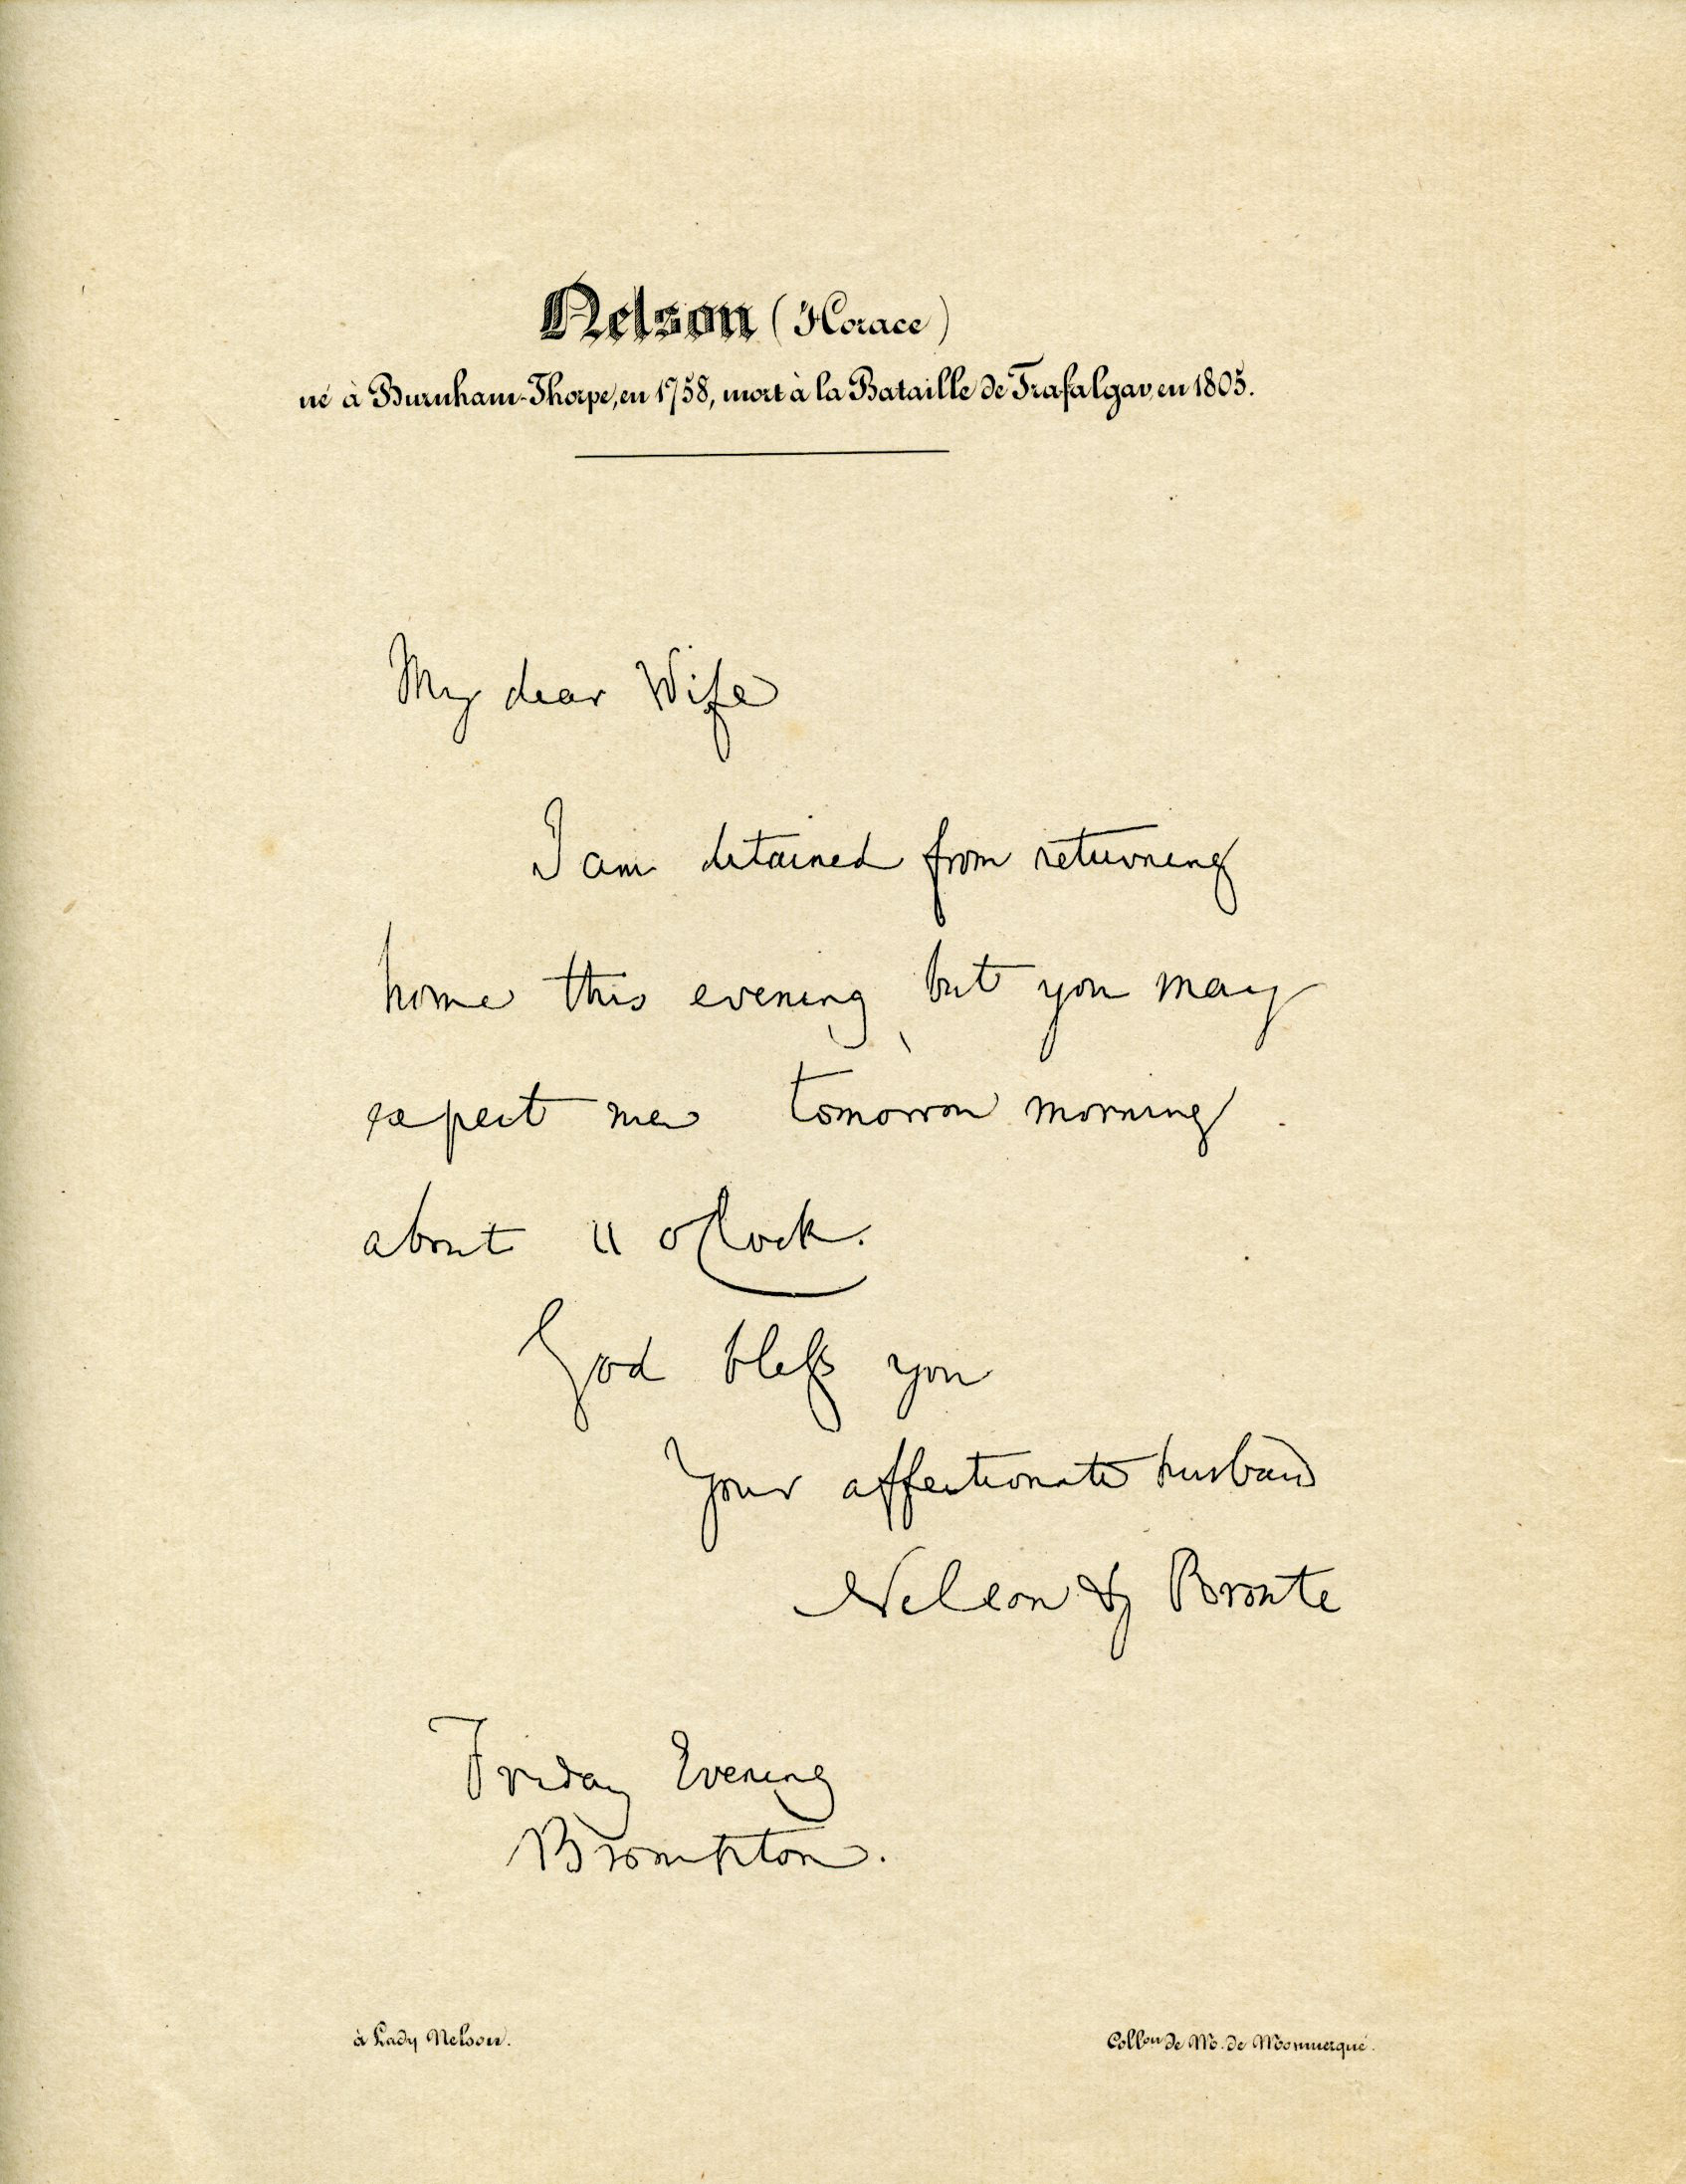 Nelson (Horace)
né à Burnham-Thorpe, en 1758, mort à la Bataille de Trafalgar, en 1805.
My dear Wife
I am detained from returning
home this evening, but you may
expect me tomorrow morning
about 11 oClock.
God bleſs you
Your affectionate husband
Nelson & Bronte
Friday Evening
Brompton.
à Lady Nelson.
Collon de M. de Monmerqué.